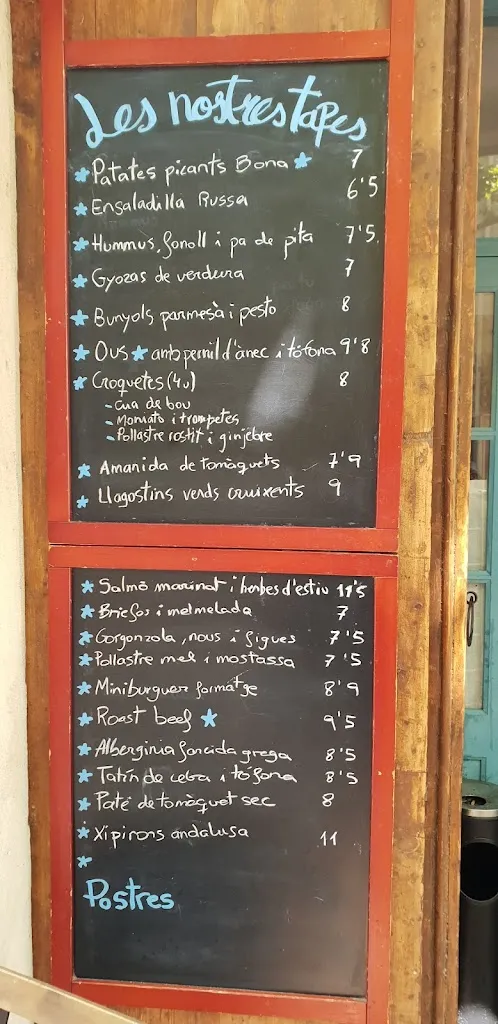 Les nostres tapes
Patates picants Bona 7
Ensaladilla Russa 6'5
Hummus, fonoll i pa de pita 7'5
Gyozas de verdura 7
Bunyols parmesà i pesto 8
Ous amb pernil d'ànec i tòfona 9'8
Croquetes (4u) 8
- Cua de bou
- Moniato i trompetes
- Pollastre rostit i gingebre
Amanida de tomàquets 7'9
Llagostins verds cruixents 9
Salmó marinat i herbes d'estiu 11'5
Brie fos i melmelada 7
Gorgonzola, nous i figues 7'5
Pollastre mel i mostassa 7'5
Miniburguer formatge 8'9
Roast beef 9'5
Alberginia farcida grega 8'5
Tatin de ceba i tòfona 8'5
Paté de tomàquet sec 8
Xipirons andalusa 11
Postres